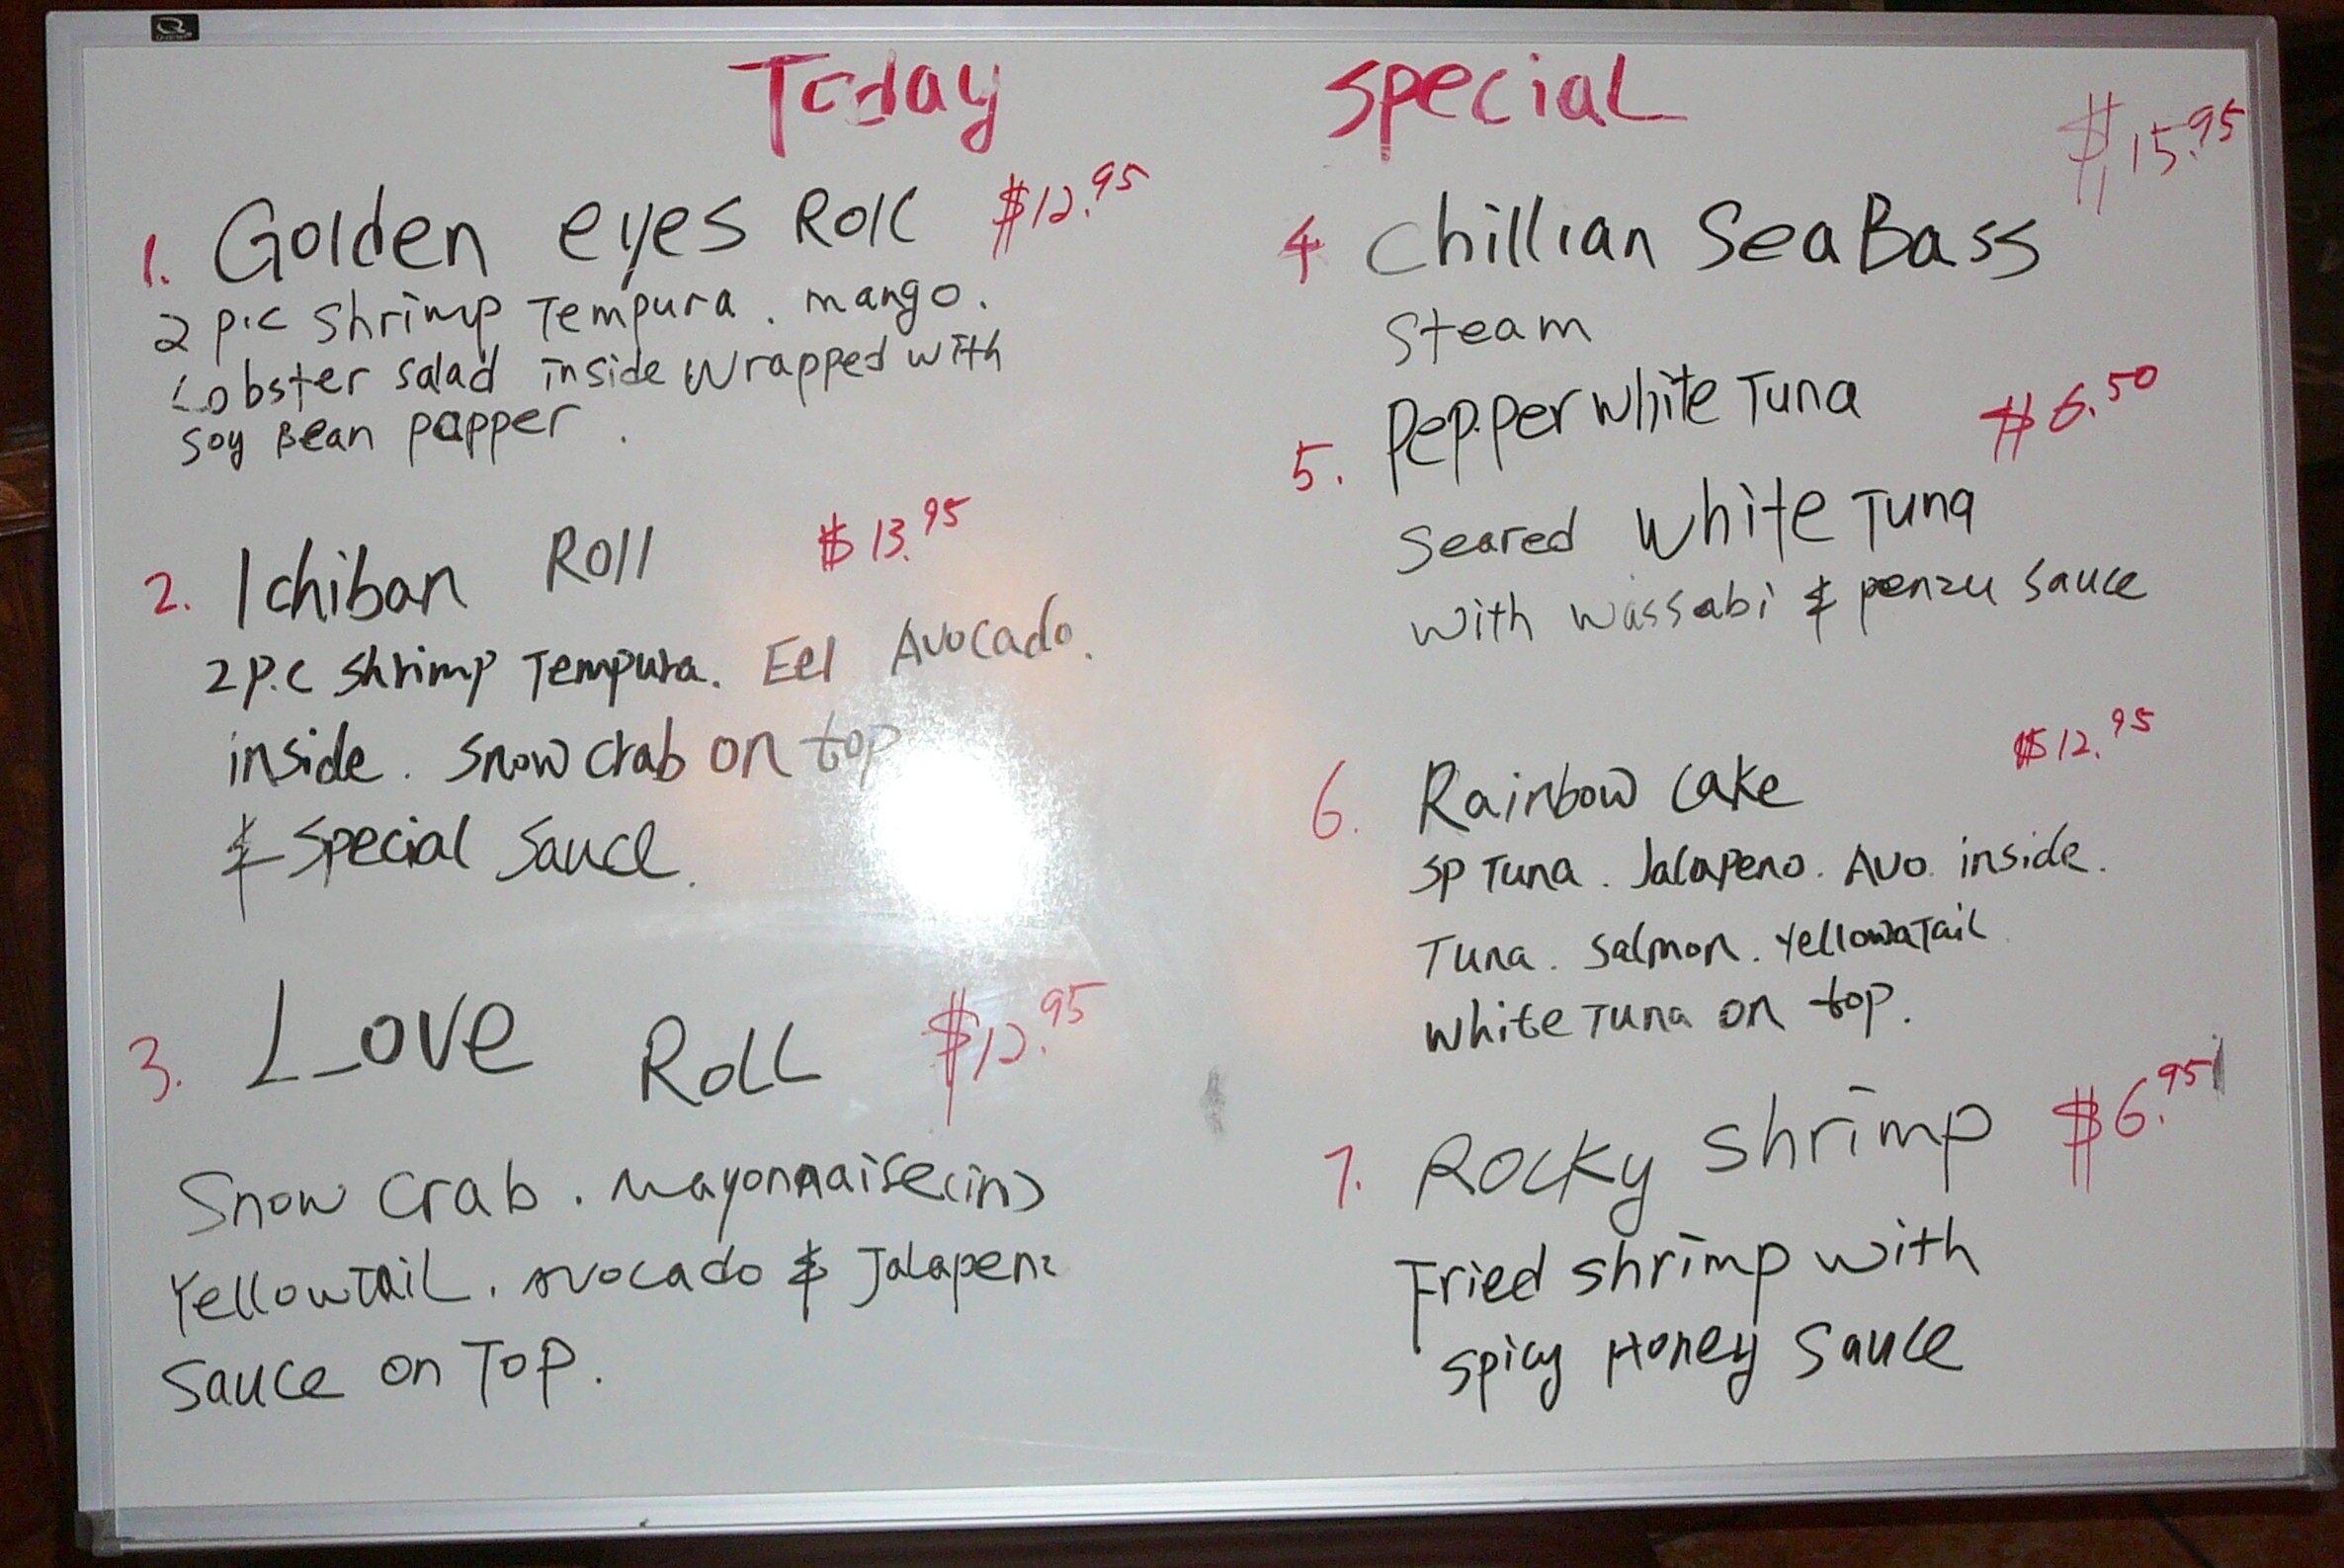 Today Special
1. Golden eyes Roll $12.95
2 p.c shrimp Tempura. mango.
Lobster salad inside wrapped with
soy Bean papper.
2. Ichiban Roll $13.95
2 p.c shrimp Tempura. Eel Avocado.
inside. snow crab on top
& special sauce.
3. Love Roll $12.95
Snow crab. mayonnaise(in)
Yellowtail. avocado & Jalapeno
sauce on Top.
$15.95
4 Chillian Sea Bass
Steam
5. Pepper white Tuna $6.50
Seared white Tuna
with wassabi & penzu sauce
6. Rainbow cake $12.95
sp Tuna. Jalapeno. Avo. inside.
Tuna. salmon. Yellowatail
white Tuna on top.
7. Rocky shrimp $6.95
Fried shrimp with
spicy Honey sauce